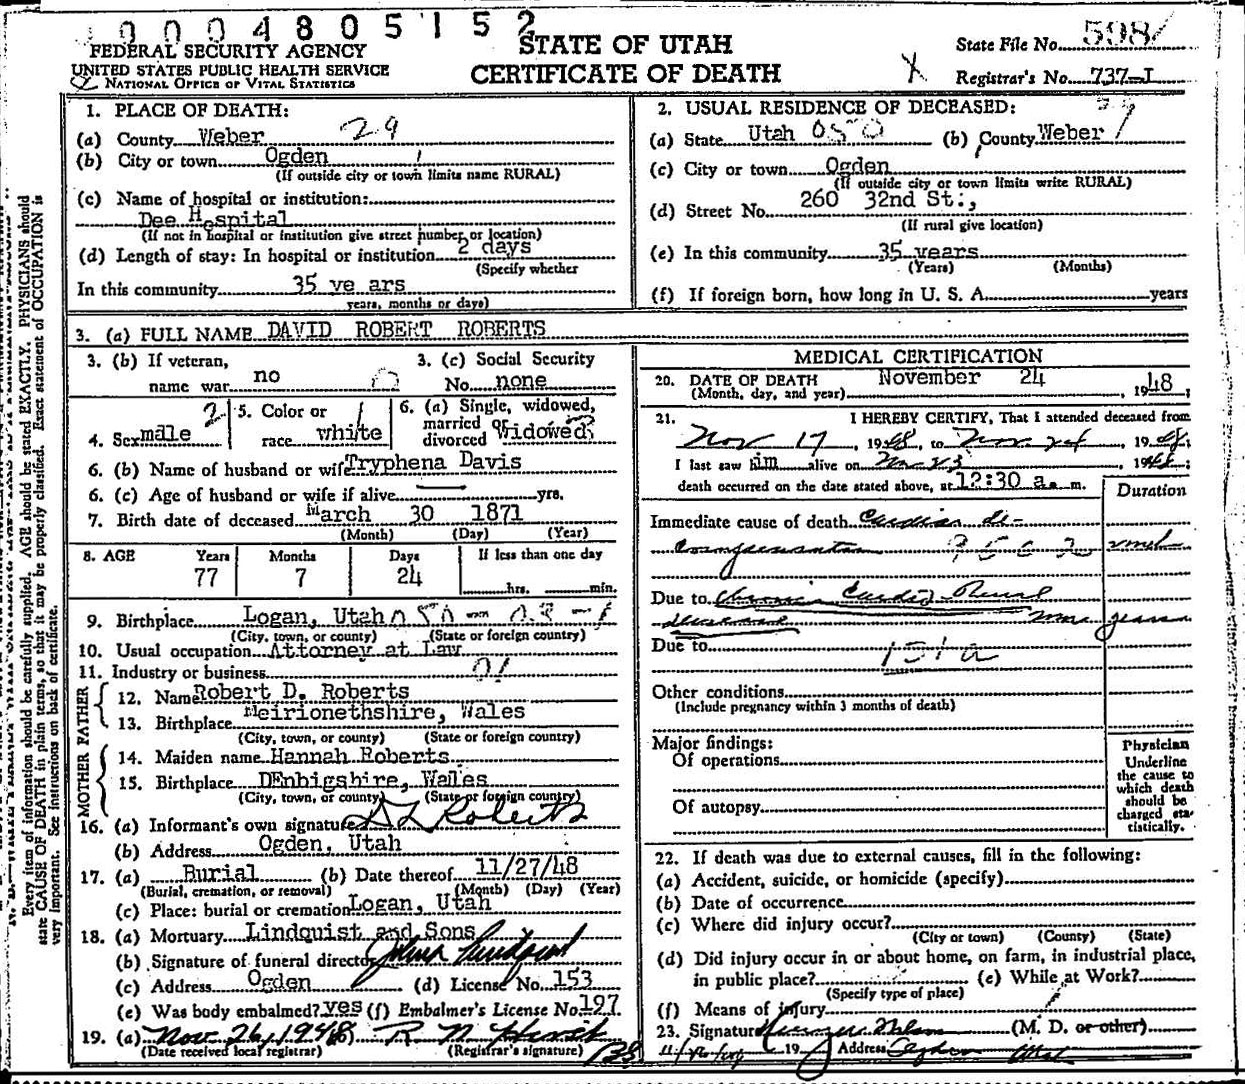 0004805152
FEDERAL SECURITY AGENCY
UNITED STATES PUBLIC HEALTH SERVICE
NATIONAL OFFICE OF VITAL STATISTICS
STATE OF UTAH
CERTIFICATE OF DEATH
State File No. 598
Registrar's No. 737-I
1. PLACE OF DEATH:
(a) County Weber 29
(b) City or town Ogden
(If outside city or town limits name RURAL)
(c) Name of hospital or institution:
Dee Hospital
(If not in hospital or institution give street number or location)
(d) Length of stay: In hospital or institution 2 days
(Specify whether
In this community 35 ye ars
years, months or days)
2. USUAL RESIDENCE OF DECEASED:
(a) State Utah 050 (b) County Weber
(c) City or town Ogden
(If outside city or town limits write RURAL)
(d) Street No. 260 32nd St:,
(If rural give location)
(e) In this community 35 years
(Years) (Months)
(f) If foreign born, how long in U. S. A. years
3. (a) FULL NAME DAVID ROBERT ROBERTS
3. (b) If veteran,
name war no
3. (c) Social Security
No. none
4. Sex male 2
5. Color or
race white
6. (a) Single, widowed,
married or
divorced Widowed
6. (b) Name of husband or wife Tryphena Davis
6. (c) Age of husband or wife if alive yrs.
7. Birth date of deceased March 30 1871
(Month) (Day) (Year)
8. AGE Years Months Days If less than one day
77 7 24 hrs. min.
9. Birthplace Logan, Utah
(City, town, or county) (State or foreign country)
10. Usual occupation Attorney at Law
11. Industry or business
FATHER
12. Name Robert D. Roberts
13. Birthplace Meirionethshire, Wales
(City, town, or county) (State or foreign country)
MOTHER
14. Maiden name Hannah Roberts
15. Birthplace DEnbigshire, Wales
(City, town, or county) (State or foreign country)
16. (a) Informant's own signature D L Roberts
(b) Address Ogden, Utah
17. (a) Burial (b) Date thereof 11/27/48
(Burial, cremation, or removal) (Month) (Day) (Year)
(c) Place: burial or cremation Logan, Utah
18. (a) Mortuary Lindquist and Sons
(b) Signature of funeral director
(c) Address Ogden (d) License No. 153
(e) Was body embalmed? yes (f) Embalmer's License No. 197
19. (a) Nov 26, 1948 (b)
(Date received local registrar) (Registrar's signature)
MEDICAL CERTIFICATION
20. DATE OF DEATH November 24
(Month, day, and year) , 1948;
21. I HEREBY CERTIFY, That I attended deceased from
Nov 17, 1948, to Nov. 24, 1948;
I last saw him alive on Nov 23, 1948;
death occurred on the date stated above, at 12:30 a. m.
Duration
Immediate cause of death Cardiac de-
compensation
Due to Chronic Cardio Renal
disease years
Due to
131a
Other conditions
(Include pregnancy within 3 months of death)
Major findings:
Of operations
Of autopsy
Physician
Underline
the cause to
which death
should be
charged sta-
tistically.
22. If death was due to external causes, fill in the following:
(a) Accident, suicide, or homicide (specify)
(b) Date of occurrence
(c) Where did injury occur?
(City or town) (County) (State)
(d) Did injury occur in or about home, on farm, in industrial place,
in public place? (e) While at Work?
(Specify type of place)
(f) Means of injury
23. Signature (M. D. or other)
19 Address Ogden Utah
Every item of information should be carefully supplied. AGE should be stated EXACTLY. PHYSICIANS should
state CAUSE OF DEATH in plain terms, so that it may be properly classified. Exact statement of OCCUPATION is
very important. See instructions on back of certificate.